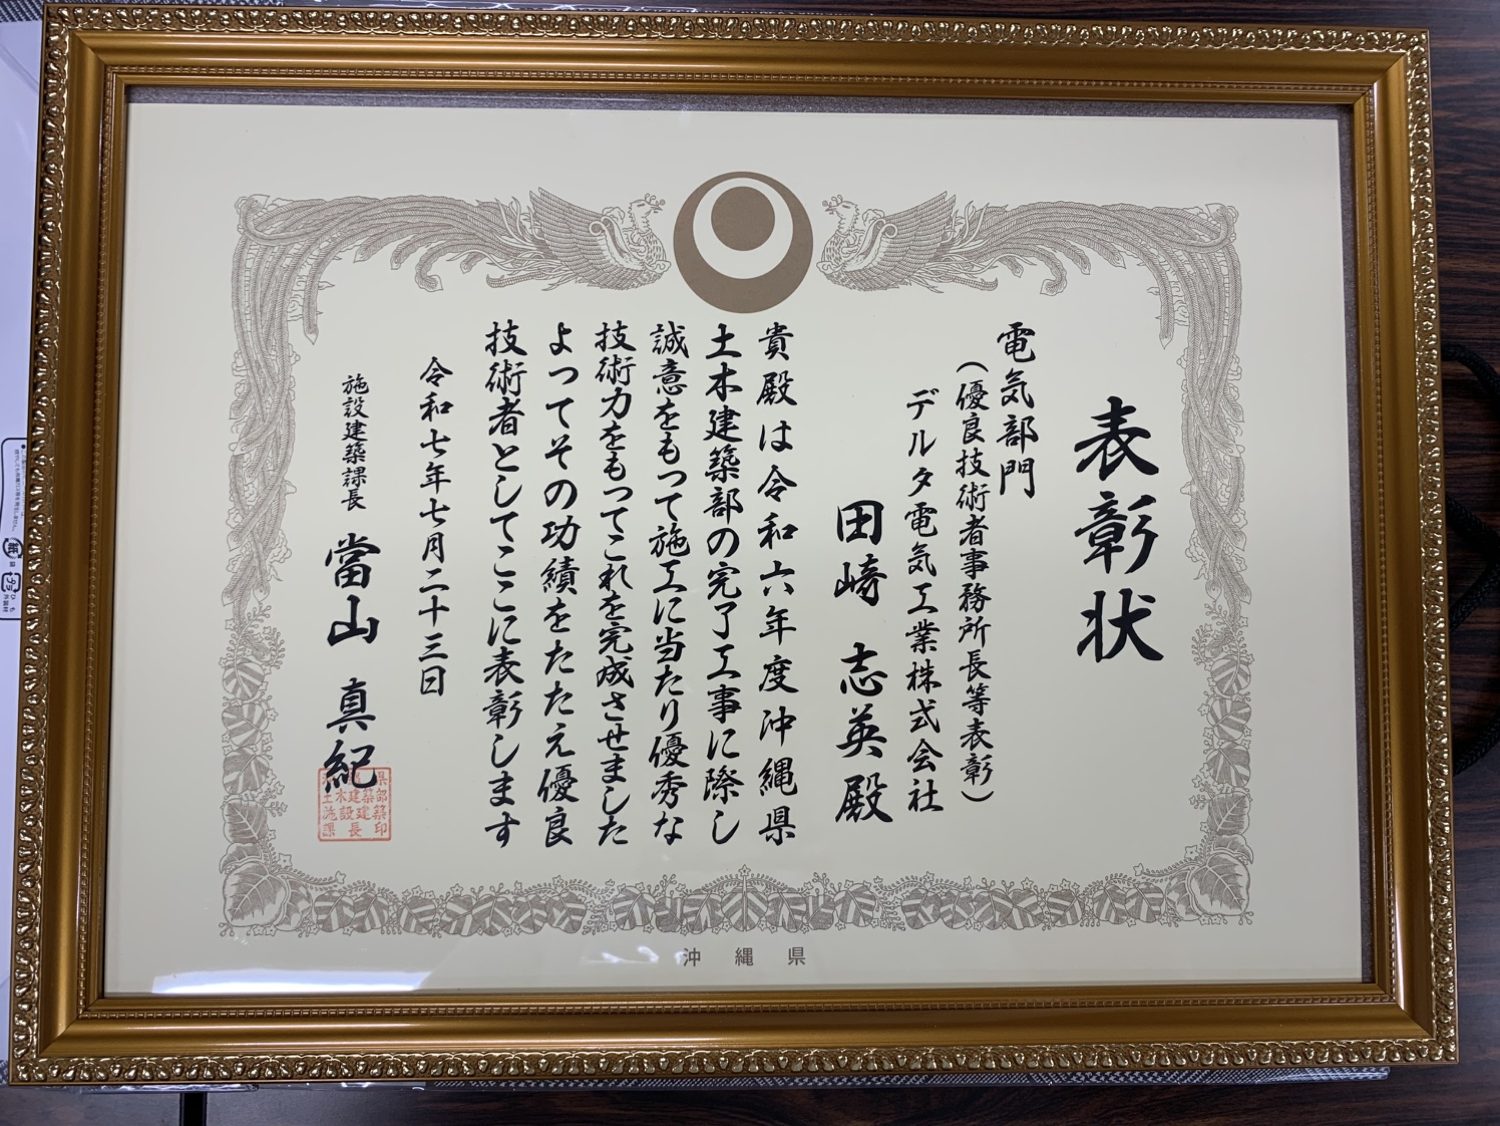 表彰状
電気部門
(優良技術者事務所長等表彰)
デルタ電気工業株式会社
田崎 志英 殿
貴殿は令和六年度沖縄県
土木建築部の完了工事に際し
誠意をもって施工に当たり優秀な
技術力をもってこれを完成させました
よってその功績をたたえ優良
技術者としてここに表彰します
令和七年七月二十三日
施設建築課長 當山 真紀
沖縄県